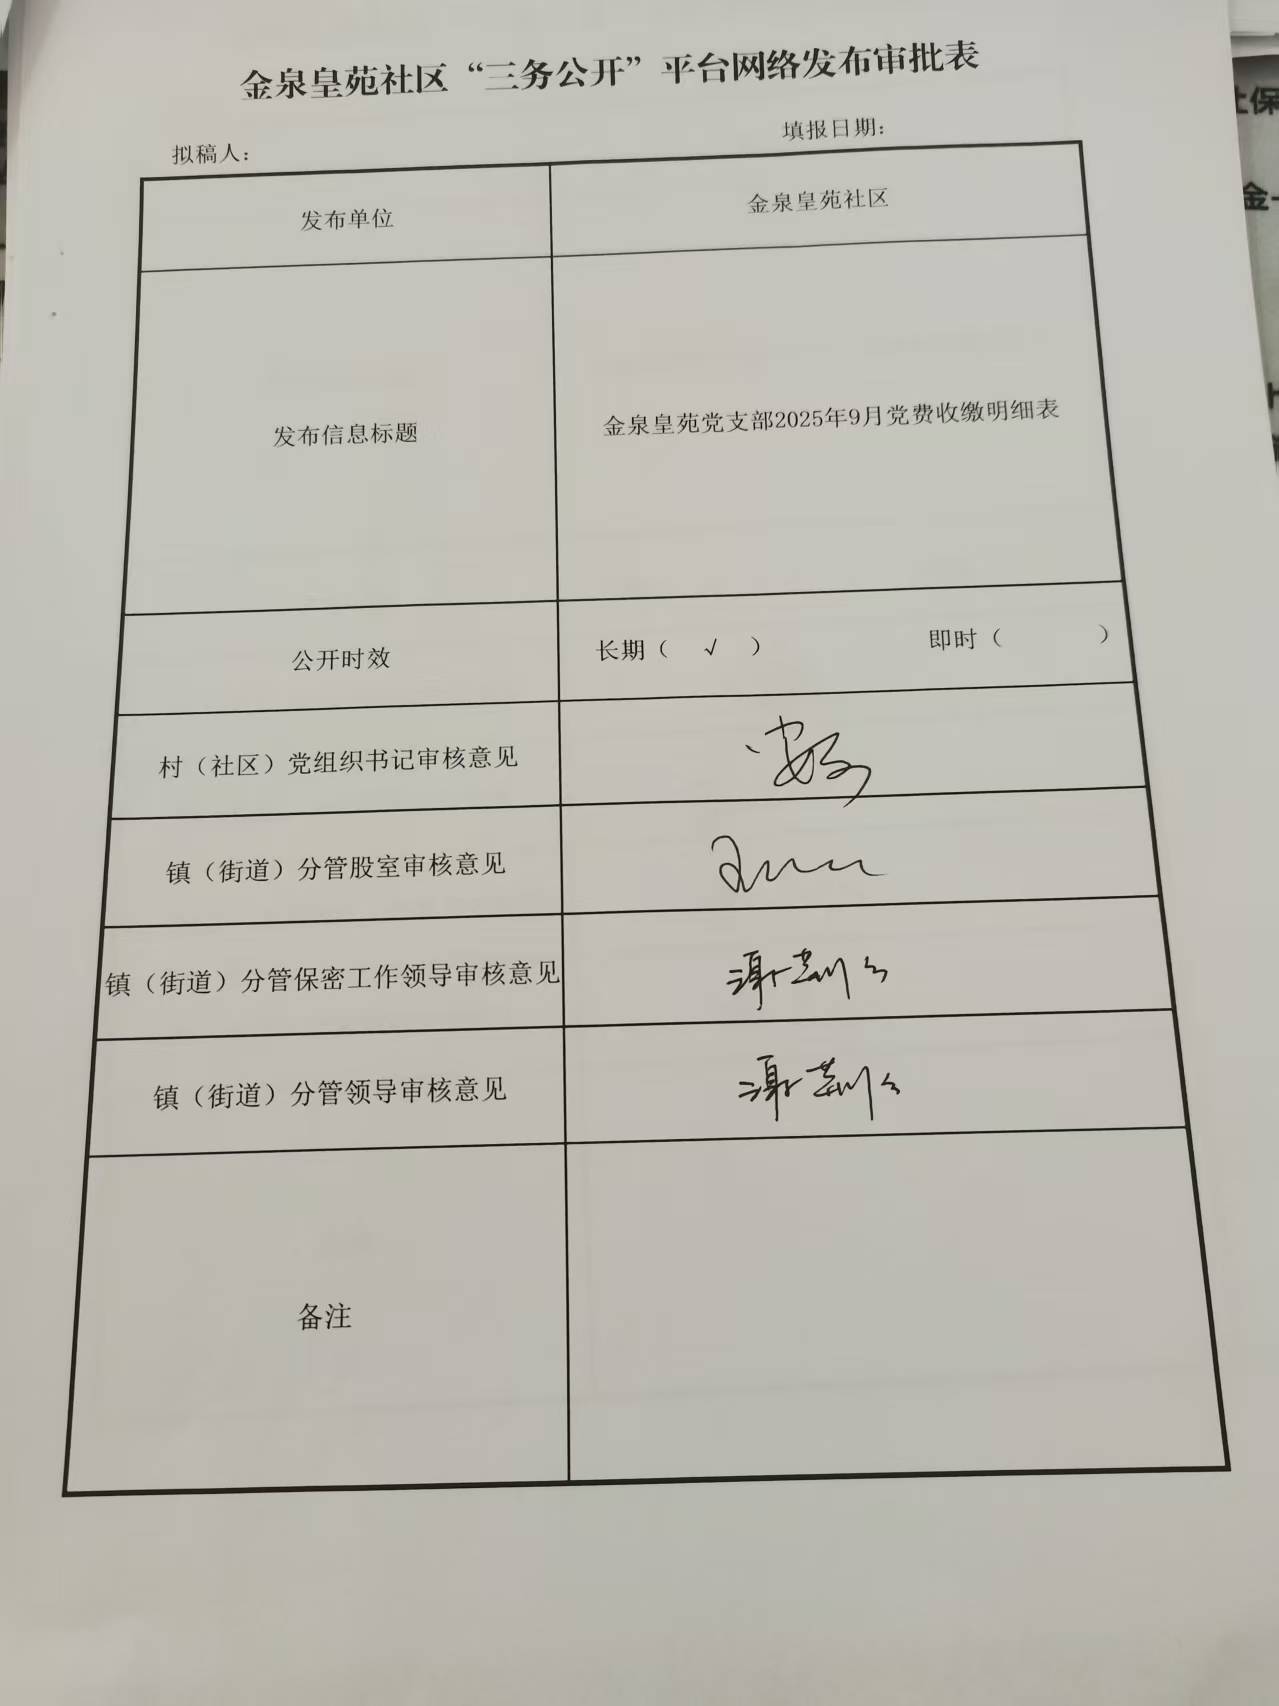 金泉皇苑社区“三务公开”平台网络发布审批表
拟稿人：
填报日期：
发布单位
金泉皇苑社区
发布信息标题
金泉皇苑党支部2025年9月党费收缴明细表
公开时效
长期（ √ ）
即时（ ）
村（社区）党组织书记审核意见
镇（街道）分管股室审核意见
镇（街道）分管保密工作领导审核意见
镇（街道）分管领导审核意见
备注